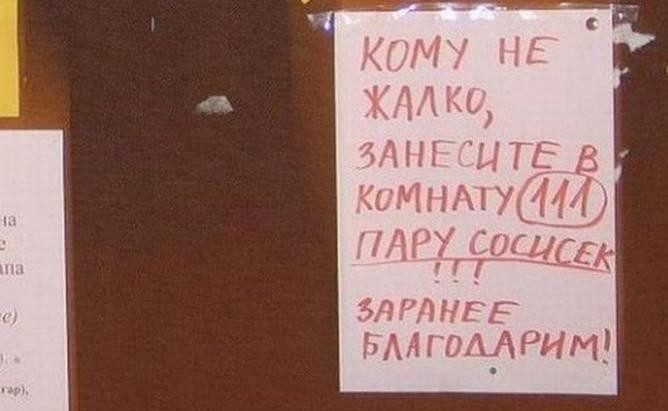 КОМУ НЕ
ЖАЛКО,
ЗАНЕСИТЕ В
КОМНАТУ 111
ПАРУ СОСИСЕК
!!!
ЗАРАНЕЕ
БЛАГОДАРИМ!
на
е
апа
е)
гар),